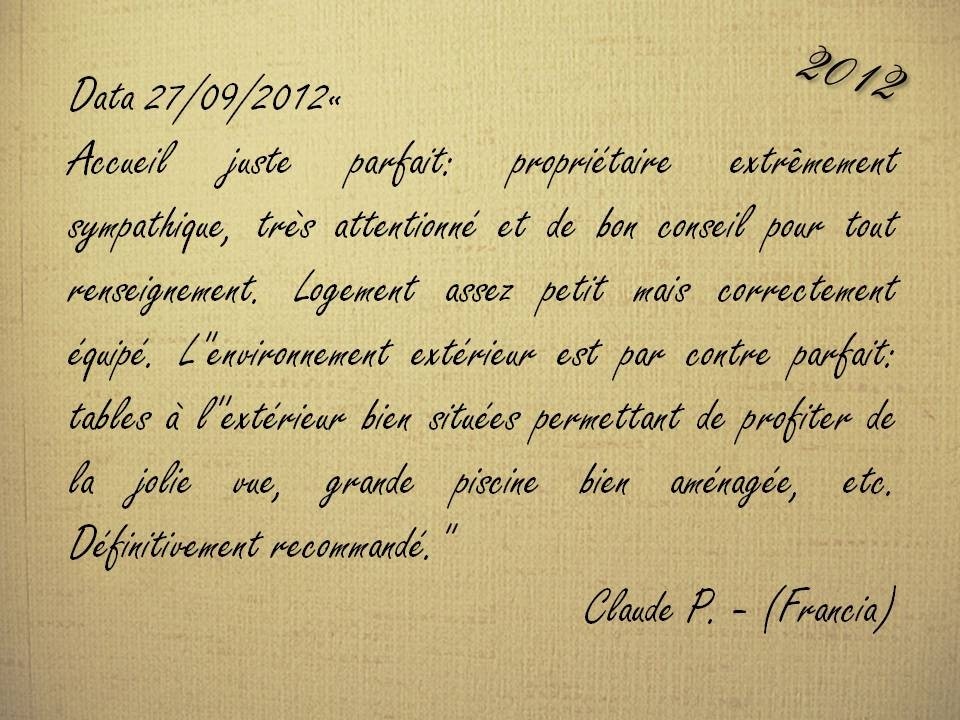 2012
Data 27/09/2012«
Accueil juste parfait: propriétaire extrêmement
sympathique, très attentionné et de bon conseil pour tout
renseignement. Logement assez petit mais correctement
équipé. L"environnement extérieur est par contre parfait:
tables à l"extérieur bien situées permettant de profiter de
la jolie vue, grande piscine bien aménagée, etc.
Définitivement recommandé."
Claude P. - (Francia)